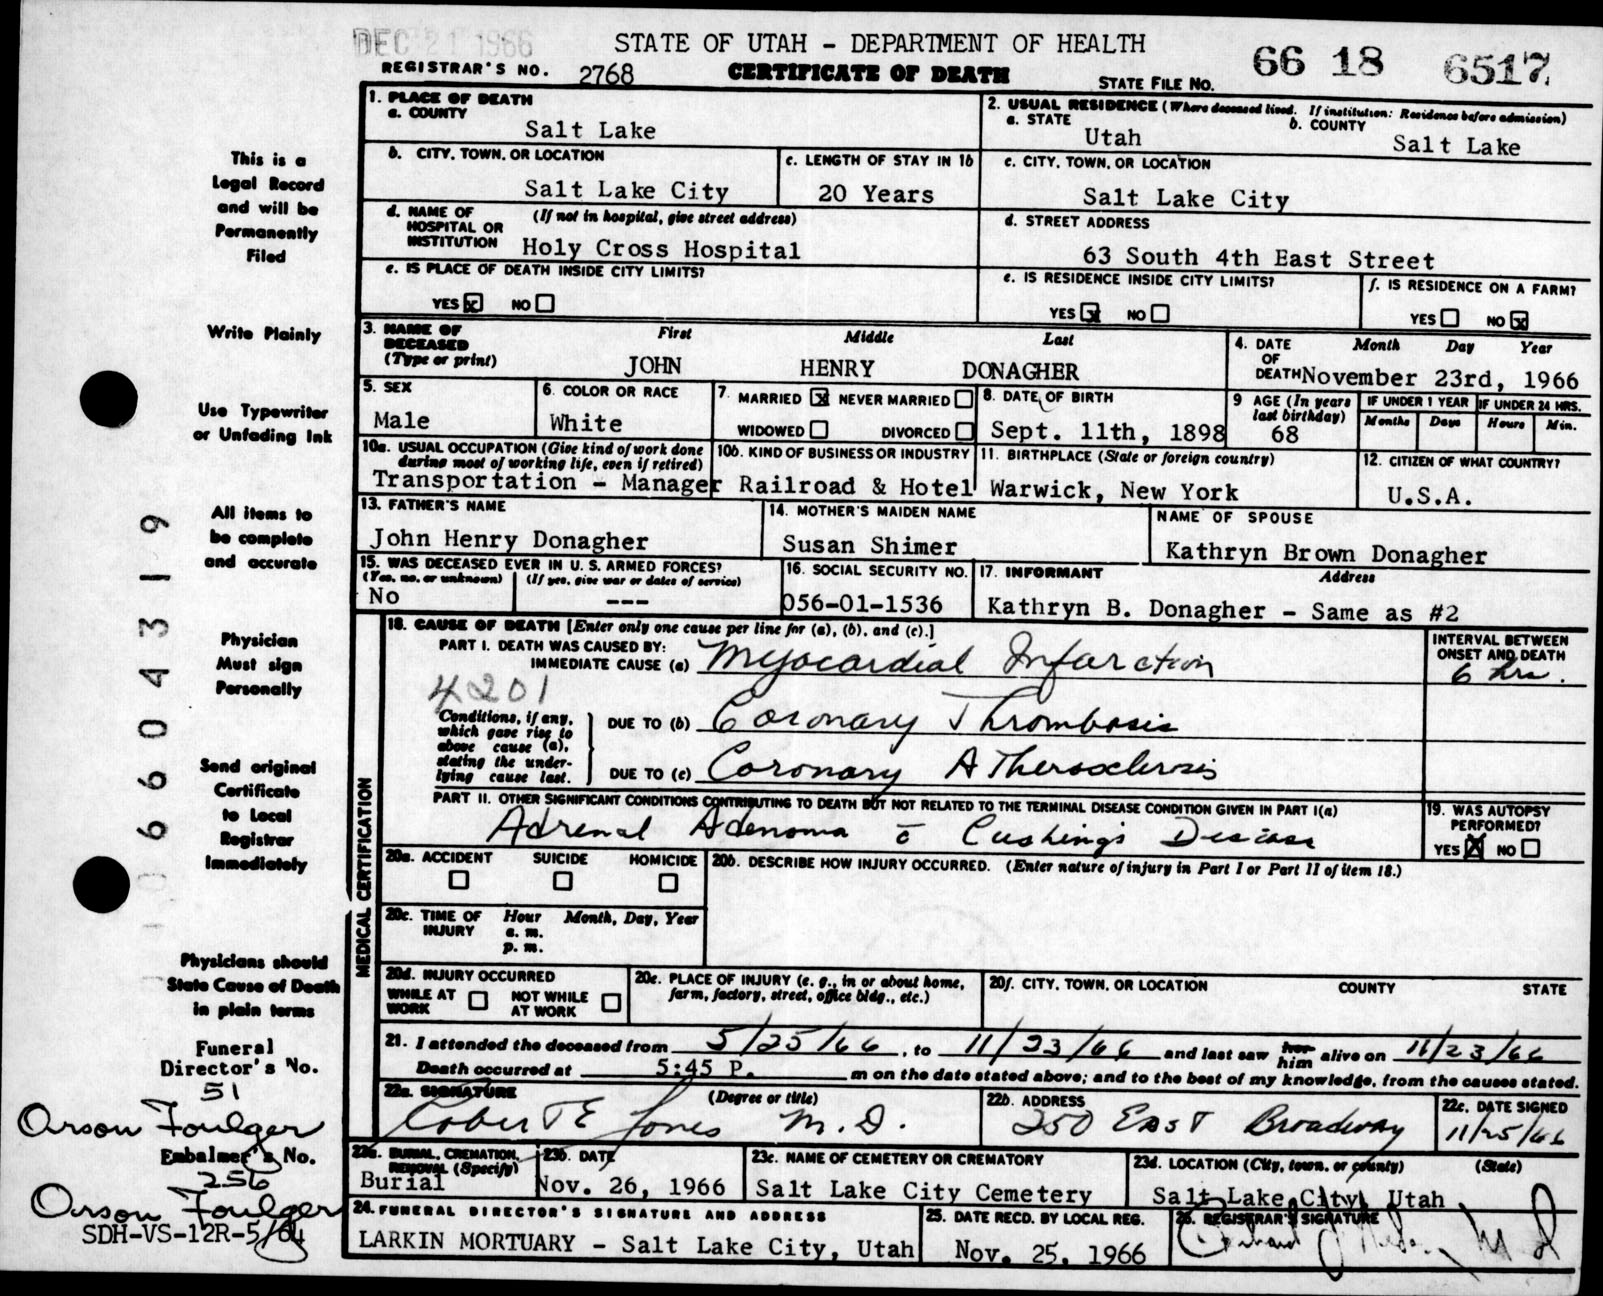 DEC 21 1966
STATE OF UTAH - DEPARTMENT OF HEALTH
REGISTRAR'S NO. 2768 CERTIFICATE OF DEATH STATE FILE NO. 66 18 6517
This is a
Legal Record
and will be
Permanently
Filed
Write Plainly
Use Typewriter
or Unfading Ink
All items to
be complete
and accurate
Physician
Must sign
Personally
Send original
Certificate
to Local
Registrar
Immediately
Physicians should
State Cause of Death
in plain terms
Funeral
Director's No.
51
Orson Foulger
Embalmer's No.
256
Orson Foulger
SDH-VS-12R-5/64
06604319
1. PLACE OF DEATH
a. COUNTY
Salt Lake
2. USUAL RESIDENCE (Where deceased lived. If institution: Residence before admission)
a. STATE b. COUNTY
Utah Salt Lake
b. CITY, TOWN, OR LOCATION c. LENGTH OF STAY IN 1b
Salt Lake City 20 Years
c. CITY, TOWN, OR LOCATION
Salt Lake City
d. NAME OF HOSPITAL OR INSTITUTION (If not in hospital, give street address)
Holy Cross Hospital
d. STREET ADDRESS
63 South 4th East Street
e. IS PLACE OF DEATH INSIDE CITY LIMITS?
YES X NO
e. IS RESIDENCE INSIDE CITY LIMITS?
YES X NO
f. IS RESIDENCE ON A FARM?
YES NO X
3. NAME OF DECEASED (Type or print) First Middle Last
JOHN HENRY DONAGHER
4. DATE OF DEATH Month Day Year
November 23rd, 1966
5. SEX
Male
6. COLOR OR RACE
White
7. MARRIED X NEVER MARRIED
WIDOWED DIVORCED
8. DATE OF BIRTH
Sept. 11th, 1898
9 AGE (In years last birthday)
68
IF UNDER 1 YEAR IF UNDER 24 HRS.
Months Days Hours Min.
10a. USUAL OCCUPATION (Give kind of work done during most of working life, even if retired)
Transportation - Manager
10b. KIND OF BUSINESS OR INDUSTRY
Railroad & Hotel
11. BIRTHPLACE (State or foreign country)
Warwick, New York
12. CITIZEN OF WHAT COUNTRY?
U.S.A.
13. FATHER'S NAME
John Henry Donagher
14. MOTHER'S MAIDEN NAME
Susan Shimer
NAME OF SPOUSE
Kathryn Brown Donagher
15. WAS DECEASED EVER IN U. S. ARMED FORCES?
(Yes, no, or unknown) (If yes, give war or dates of service)
No ---
16. SOCIAL SECURITY NO.
056-01-1536
17. INFORMANT Address
Kathryn B. Donagher - Same as #2
MEDICAL CERTIFICATION
18. CAUSE OF DEATH [Enter only one cause per line for (a), (b), and (c).]
INTERVAL BETWEEN ONSET AND DEATH
PART I. DEATH WAS CAUSED BY:
IMMEDIATE CAUSE (a) Myocardial Infarction 6 hrs.
4201
Conditions, if any, which gave rise to above cause (a), stating the underlying cause last.
DUE TO (b) Coronary Thrombosis
DUE TO (c) Coronary Atherosclerosis
PART II. OTHER SIGNIFICANT CONDITIONS CONTRIBUTING TO DEATH BUT NOT RELATED TO THE TERMINAL DISEASE CONDITION GIVEN IN PART I(a)
Adrenal Adenoma c̄ Cushing's Disease
19. WAS AUTOPSY PERFORMED?
YES X NO
20a. ACCIDENT SUICIDE HOMICIDE
20b. DESCRIBE HOW INJURY OCCURRED. (Enter nature of injury in Part I or Part II of item 18.)
20c. TIME OF INJURY Hour Month, Day, Year
a. m.
p. m.
20d. INJURY OCCURRED
WHILE AT WORK NOT WHILE AT WORK
20e. PLACE OF INJURY (e. g., in or about home, farm, factory, street, office bldg., etc.)
20f. CITY, TOWN, OR LOCATION COUNTY STATE
21. I attended the deceased from 5/25/66, to 11/23/66 and last saw her him alive on 11/23/66
Death occurred at 5:45 P. m on the date stated above; and to the best of my knowledge, from the causes stated.
22a. SIGNATURE (Degree or title)
Robert E Jones M.D.
22b. ADDRESS
250 East Broadway
22c. DATE SIGNED
11/25/66
23a. BURIAL, CREMATION, REMOVAL (Specify)
Burial
23b. DATE
Nov. 26, 1966
23c. NAME OF CEMETERY OR CREMATORY
Salt Lake City Cemetery
23d. LOCATION (City, town, or county) (State)
Salt Lake City, Utah
24. FUNERAL DIRECTOR'S SIGNATURE AND ADDRESS
LARKIN MORTUARY - Salt Lake City, Utah
25. DATE RECD. BY LOCAL REG.
Nov. 25, 1966
26. REGISTRAR'S SIGNATURE